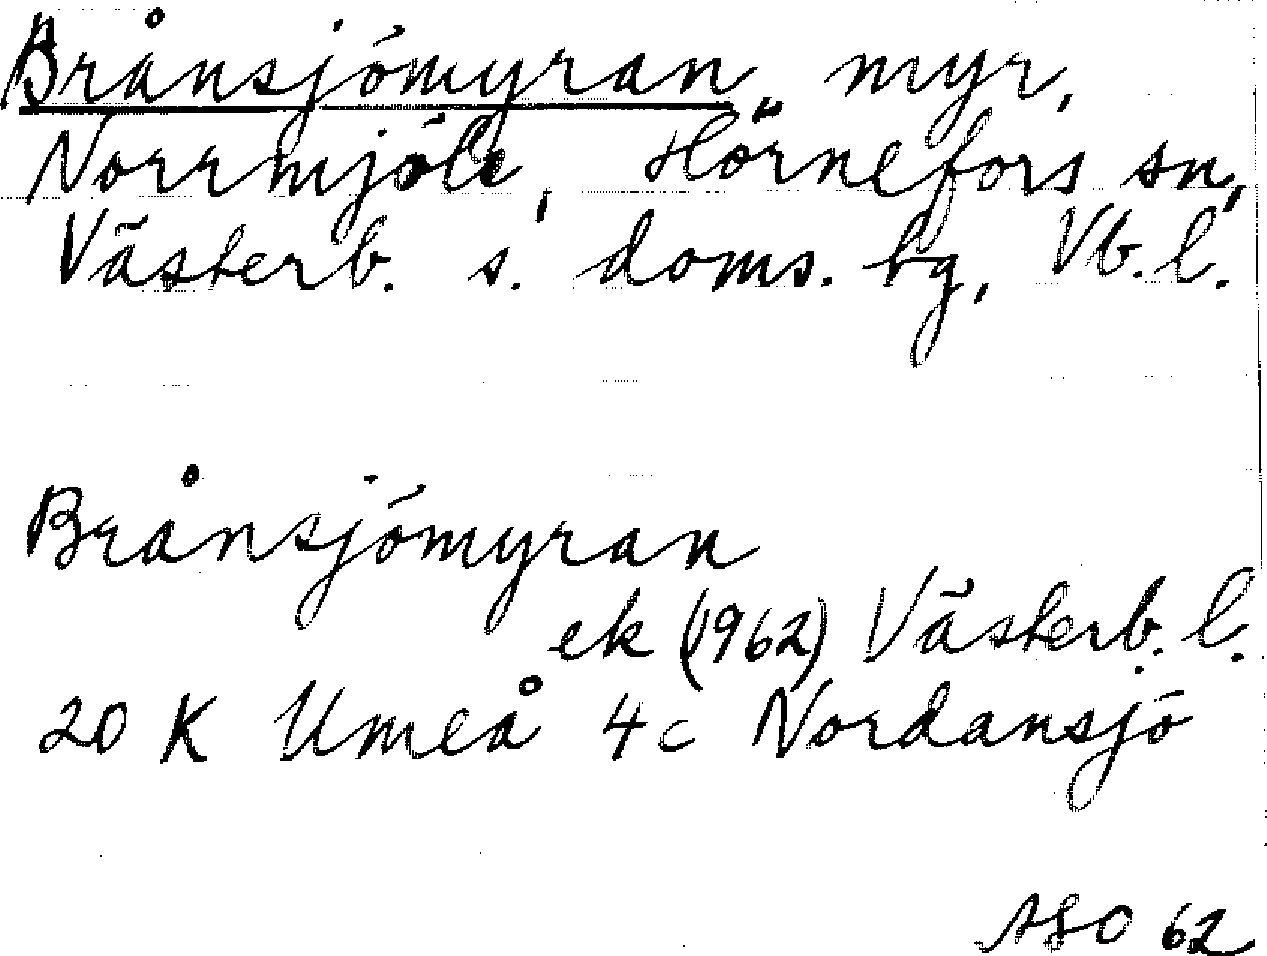 Brånsjömyran, myr,
Norrmjöle, Hörnefors sn,
Västerb. s. doms. tg, Vb. l.
Brånsjömyran
ek (1962) Västerb. l.
20 K Umeå 4c Nordansjö
ASO 62